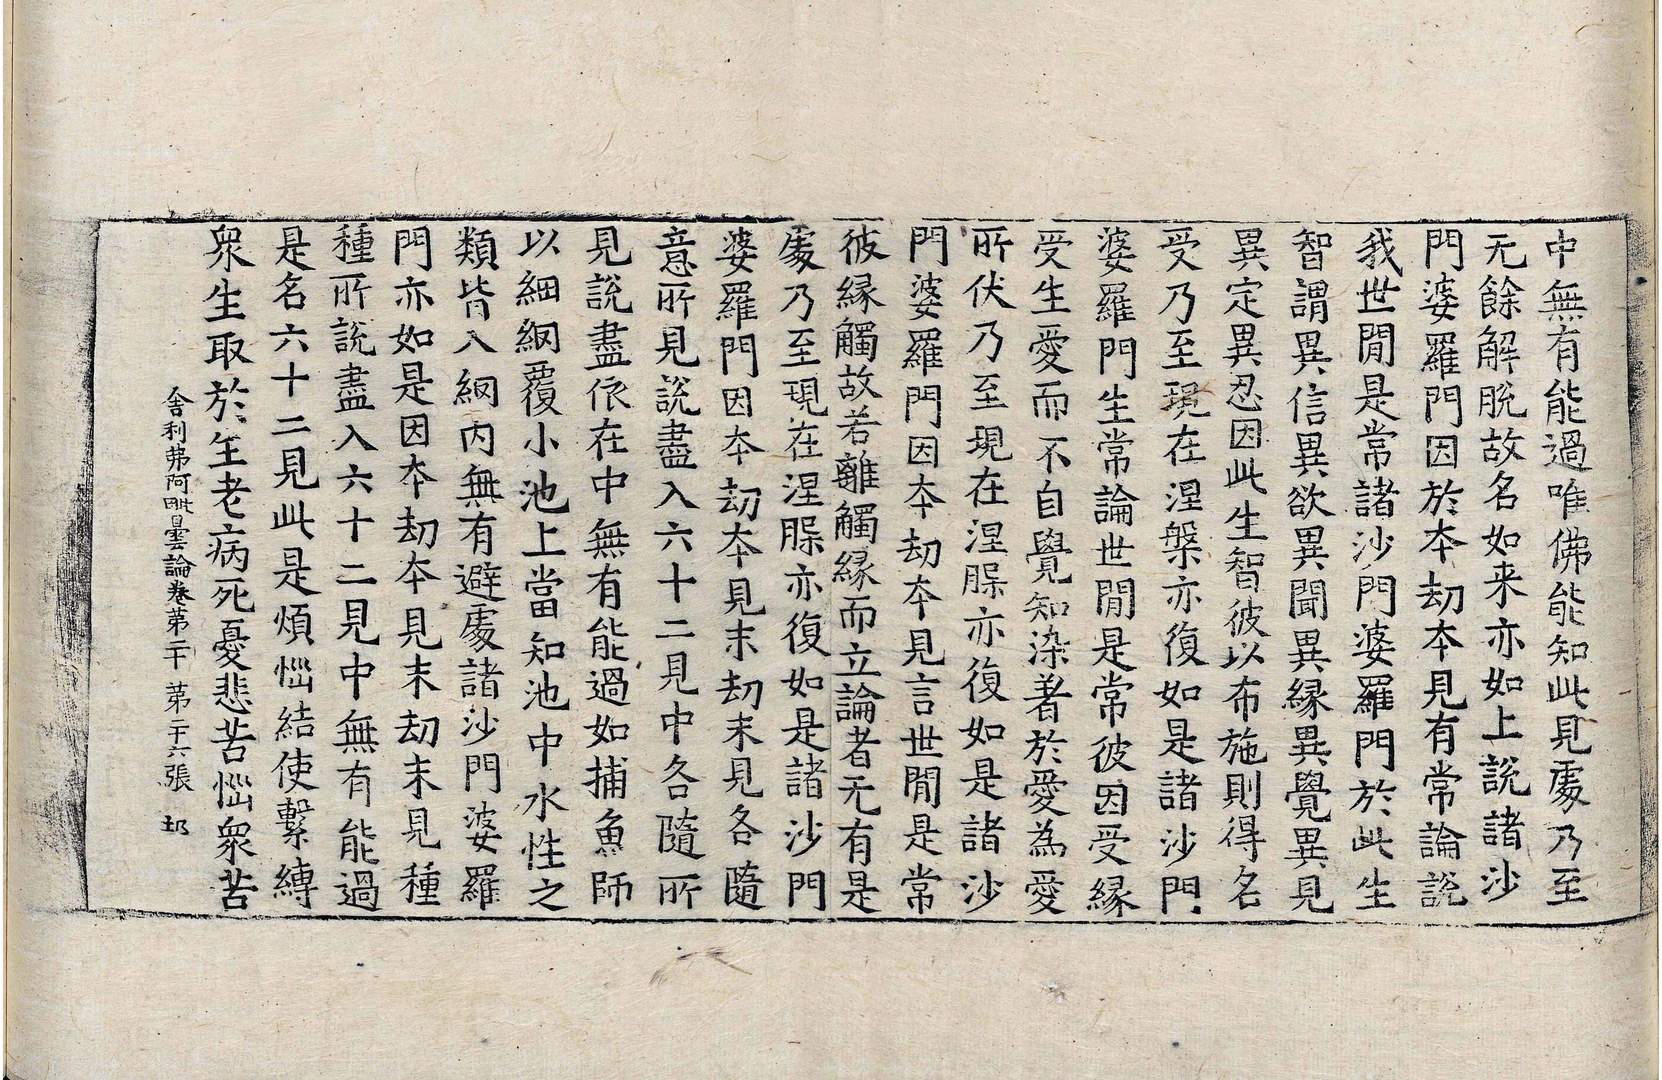 中無有能過唯佛能知此見處乃至
无餘解脫故名如来亦如上說諸沙
門婆羅門因於夲劫夲見有常論說
我世間是常諸沙門婆羅門於此生
智謂異信異欲異聞異緣異覺異見
異定異忍因此生智彼以布施則得名
受乃至現在涅槃亦復如是諸沙門
婆羅門生常論世間是常彼因受緣
受生愛而不自覺知染著於愛為愛
所伏乃至現在涅槃亦復如是諸沙
門婆羅門因夲劫夲見言世間是常
彼緣觸故若離觸緣而立論者无有是
處乃至現在涅槃亦復如是諸沙門
婆羅門因夲劫夲見末劫末見各隨
意所見說盡入六十二見中各隨所
見說盡依在中無有能過如捕魚師
以細網覆小池上當知池中水性之
類皆入網內無有避處諸沙門婆羅
門亦如是因夲劫夲見末劫末見種
種所說盡入六十二見中無有能過
是名六十二見此是煩惱結使繫縛
衆生取於生老病死憂悲苦惱衆苦
舍利弗阿毗曇論卷第二十 第二十六張